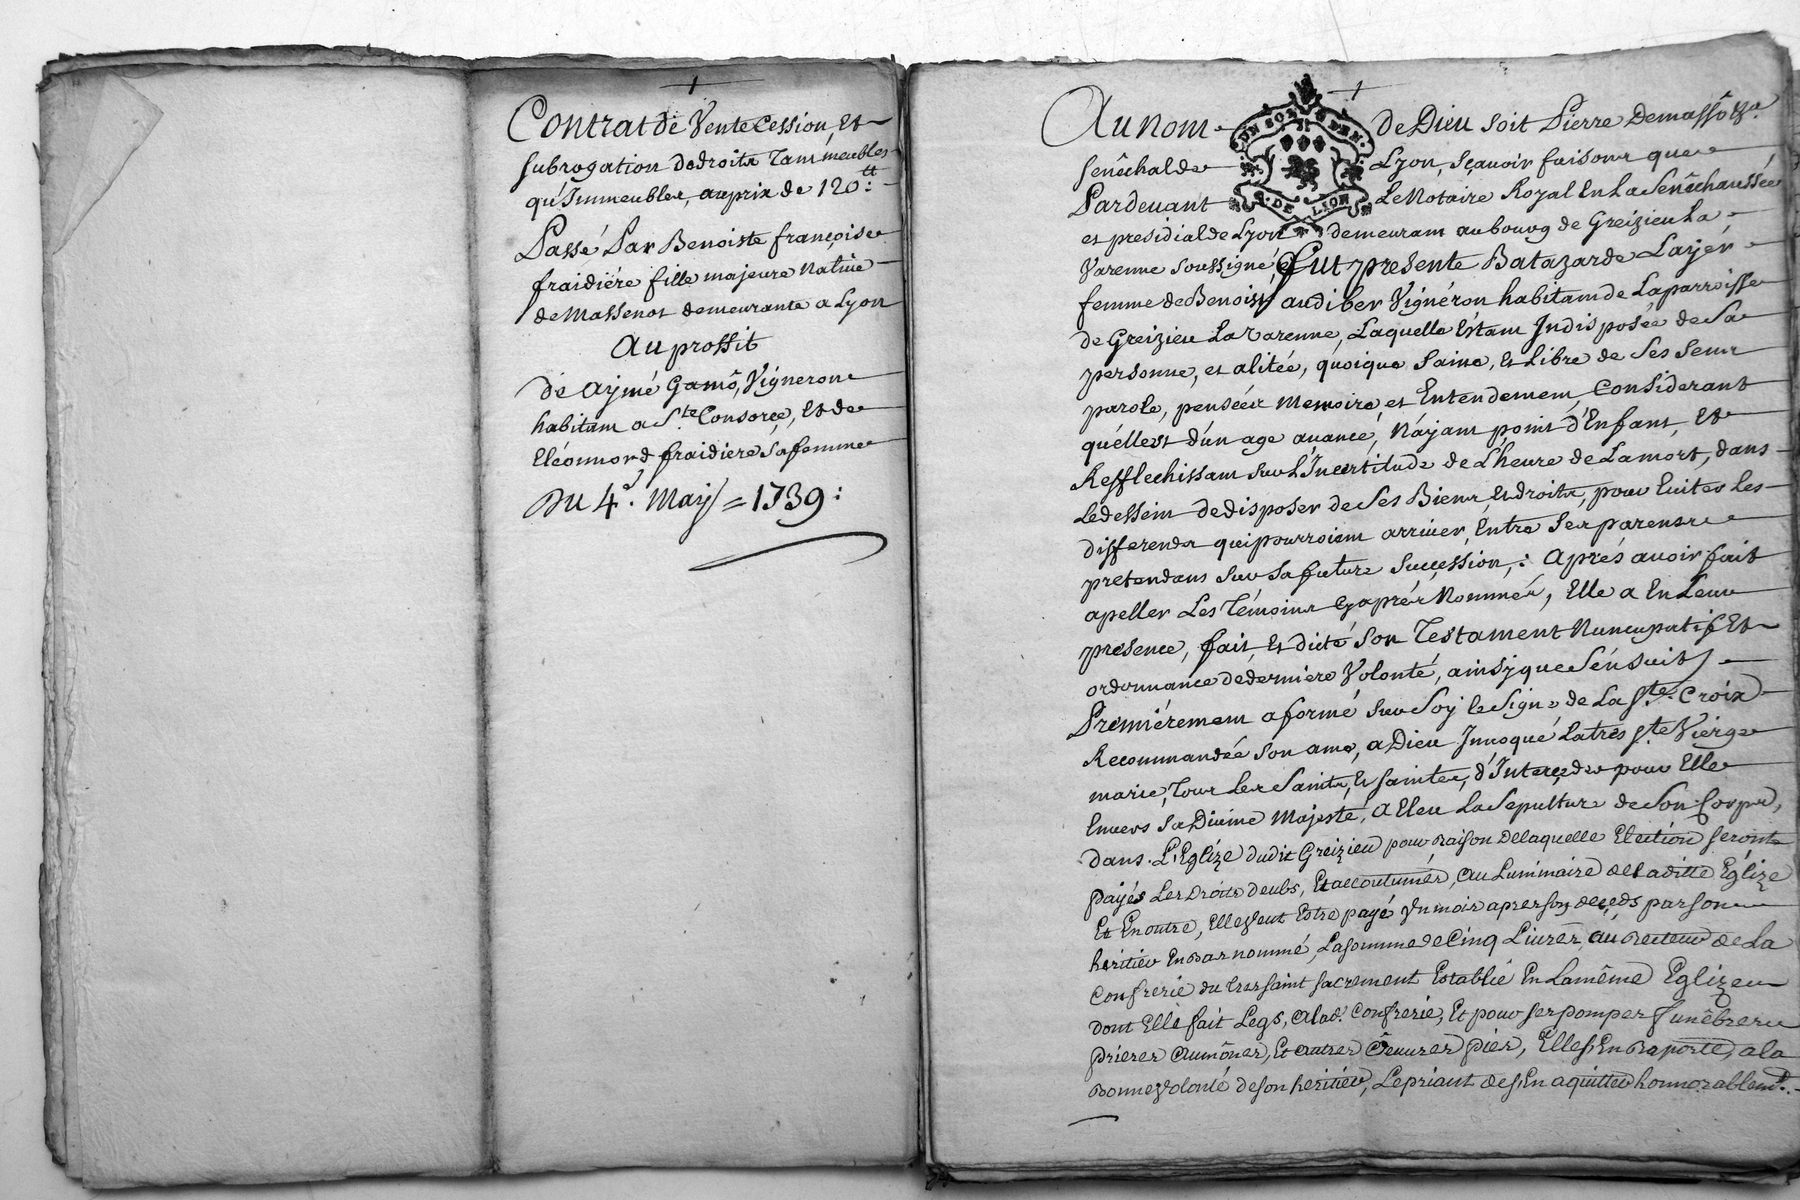 Contrat de Vente Cession, Et
subrogation de droits Tant meubles
qu'Immeubles, au prix de 120 ₶:
Passé Par Benoiste françoise
fraidiére fille majeure Native
de Massenot demeurante a Lyon
Au proffit
de Aymé Gamô, Vigneron
habitant a Ste. Consorce, Et de
Eléonnord fraidiére sa femme
Du 4e. May = 1739:
Au nom de Dieu soit Pierre Demassô &a.
senêchal de Lyon, sçavoir faisons que
Pardevant Le Notaire Royal En La Senêchaussée
UN SOL 4 DEN.
G. DE LION
et presidial de Lyon demeurant au bourg de Greizieu La
Varenne soussigné, fut presente Batazarde Layér
femme de Benoist audiber Vignéron habitant de La parroisse
de Greizieu La Varenne, Laquelle Étant Indisposée de Sa
personne, et alitée, quoique saine, et Libre de ses sens
parole, pensées Memoire, et Entendement, Considerant
qu'elle est d'un age avancé, N'ayant point d'Enfant, Et
Refflechissant sur L'Incertitude de L'heure de La mort, dans
Le dessein de disposer de ses Biens et droits, pour Eviter Les
differends qui pourroient arriver, Entre Ses parens
pretendans sur sa future succession,: aprés avoir fait
apeller Les Témoins cy aprés Nommés, Elle a En Leur
presence, fait, et dicté son Testament Nuncupatif Et
ordonnance de derniere Volonté, ainsy que S'énsuit
Premiérement a formé sur Soy le Signe de La Ste. Croix
Recommandée son ame, a Dieu Invoqué La trés Ste Vierge
marie, Tous Les Saints, Et saintes, d'Interçeder pour Elle
Envers sa Divine Majesté, A Eleu La Sepulture de Son Corps,
dans L'Eglize dudit Greizieu pour Raison De laquelle Election seront
payés Les Droits deubs, Et accoutumés, Au Luminaire de Laditte Eglize
Et En outre, Elle veut Estre payé Un mois apres son deceds par son
heritier En Bas nommé, La somme de Cinq Livres, Au Recteur de La
Confrerie du tres saint sacrement Establie En La même Eglize
dont Elle fait Legs, A lad. Confrerie, Et pour ses pompes funêbres
prieres Aumônes, Et autres Oeuvres pies, Elle s'En Raporte, a la
Bonne volonté de son heritier, Le priant de s'En aquitter honnorablemt.